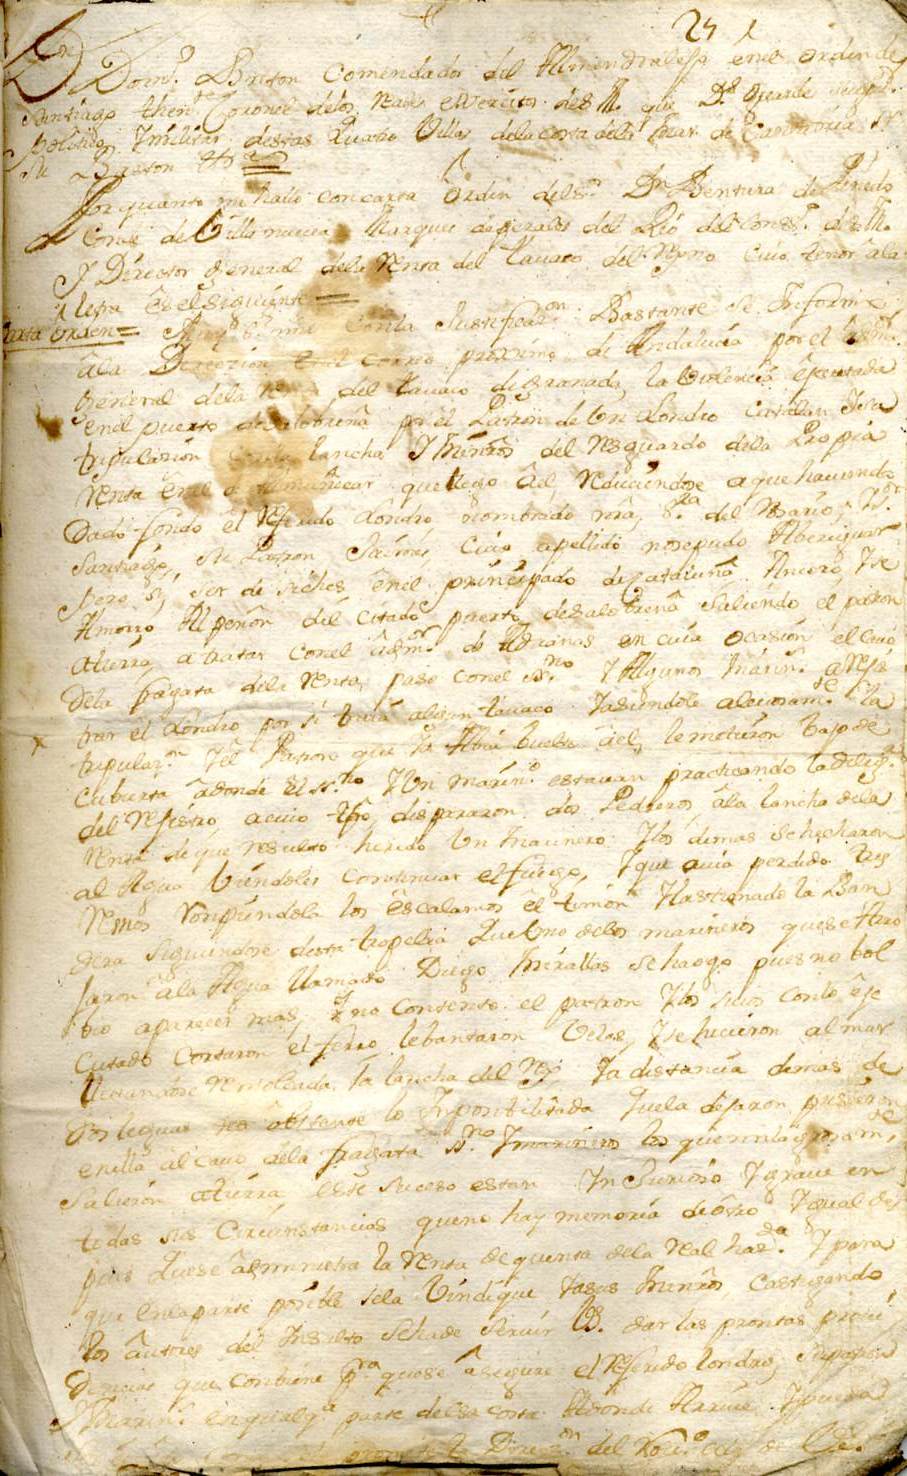 24 1
Dn Domo. Breton Comendador del Almendralejo en el orden de
Santiago thente. Coronel delos Reales exercitos de S. M. que Ds. guarde
Politico, y militar destas Quatro Villas dela costa dela mar de Cantabria
Breton
Por quanto me hallo con carta orden del Sr. Dn Bentura de Pinedo
Conde de Villanueva Marques de perales del Rio del Consejo. de S. M.
Y Director General dela Renta del tavaco del Reyno cuio tenor âla
letra es el siguiente =
Carta Orden = Con la Justificazon. Bastante se Informa
âla Direczion en el correo proximo de Andalucia por el
General dela Renta del tavaco de Granada, la violencia êjecutada
en el puerto de salobreña por el Patron de Un Londro Catalan Y su
tripulazion lancha Y Ministros del Resguardo dela Propia
Renta en el de Almuñecar que llego âél Reduciendose a que haviendo
dado fondo el Referido Londro nombrado nra. Sra. del Rosario, Y Sn.
Santiago, su Patron Jaime Cuio apellido nosepudo Aberiguar
pero sí, ser de Siches ên el principado de Cataluña Ancoró, Y se
Amarro Al peñon del citado puerto de salobreña saliendo el patron
atierra, a tratar con el admor. de Aduanas en cuia ocasion el Cavo
dela fragata dela Renta, paso con el Sno. Y Algunos Marins. a Rejis
trar el Londro por si traia algun tavaco Y
tripulazn. Y el Patron que ha Avia buelto âel, le metieron bajo de
Cubierta âdonde el Sno. Y Un Marino. estavan practicando la dilixa.
del Rejistro a cuio tpo. dispararon dos Pedreros âla lancha dela
Renta de que Resulto herido Un Marinero Y los demas se hecharon
al Agua Viendoles Continuar el fuego, Y que avia perdido tres
Remos Rompiendola los êscalamos el timon Y lastimado la Ban
dera siguiendose desta tropelia que Uno delos marineros que se Arro
jaron âla Agua llamado Diego Miralles se haogo pues no bol
bio aparecer mas, Y no Contento el patron Y los suios con lo êje
cutado Cortaron el ferro lebantaron Velas, Y se hicieron al mar
llevandose Remolcada la lancha del Rey, Y a distancia de mas de
dos leguas no obstante lo Inposibilitada que la dejaron pusieron
en ella al cavo dela fragata Sno. Y marineros los que milagrosamte.
salieron atierra este suceso es tan Y grave en
todas sus Circunstancias que no hay memoria de ôtro Y gual des
pues que se administra la Renta de quenta dela Real hazda. Y para
que en la parte posible se la Vindique Y a sus Ministros Castigando
los autores del Insulto se ha de servir Vd. dar las prontas provi
dencias que conbiene pra. que se âsegure el Referido londro, su patron
Y Marins. en qualqa. parte de esa costa Adonde Arrive Y
Direczon. del Vd.